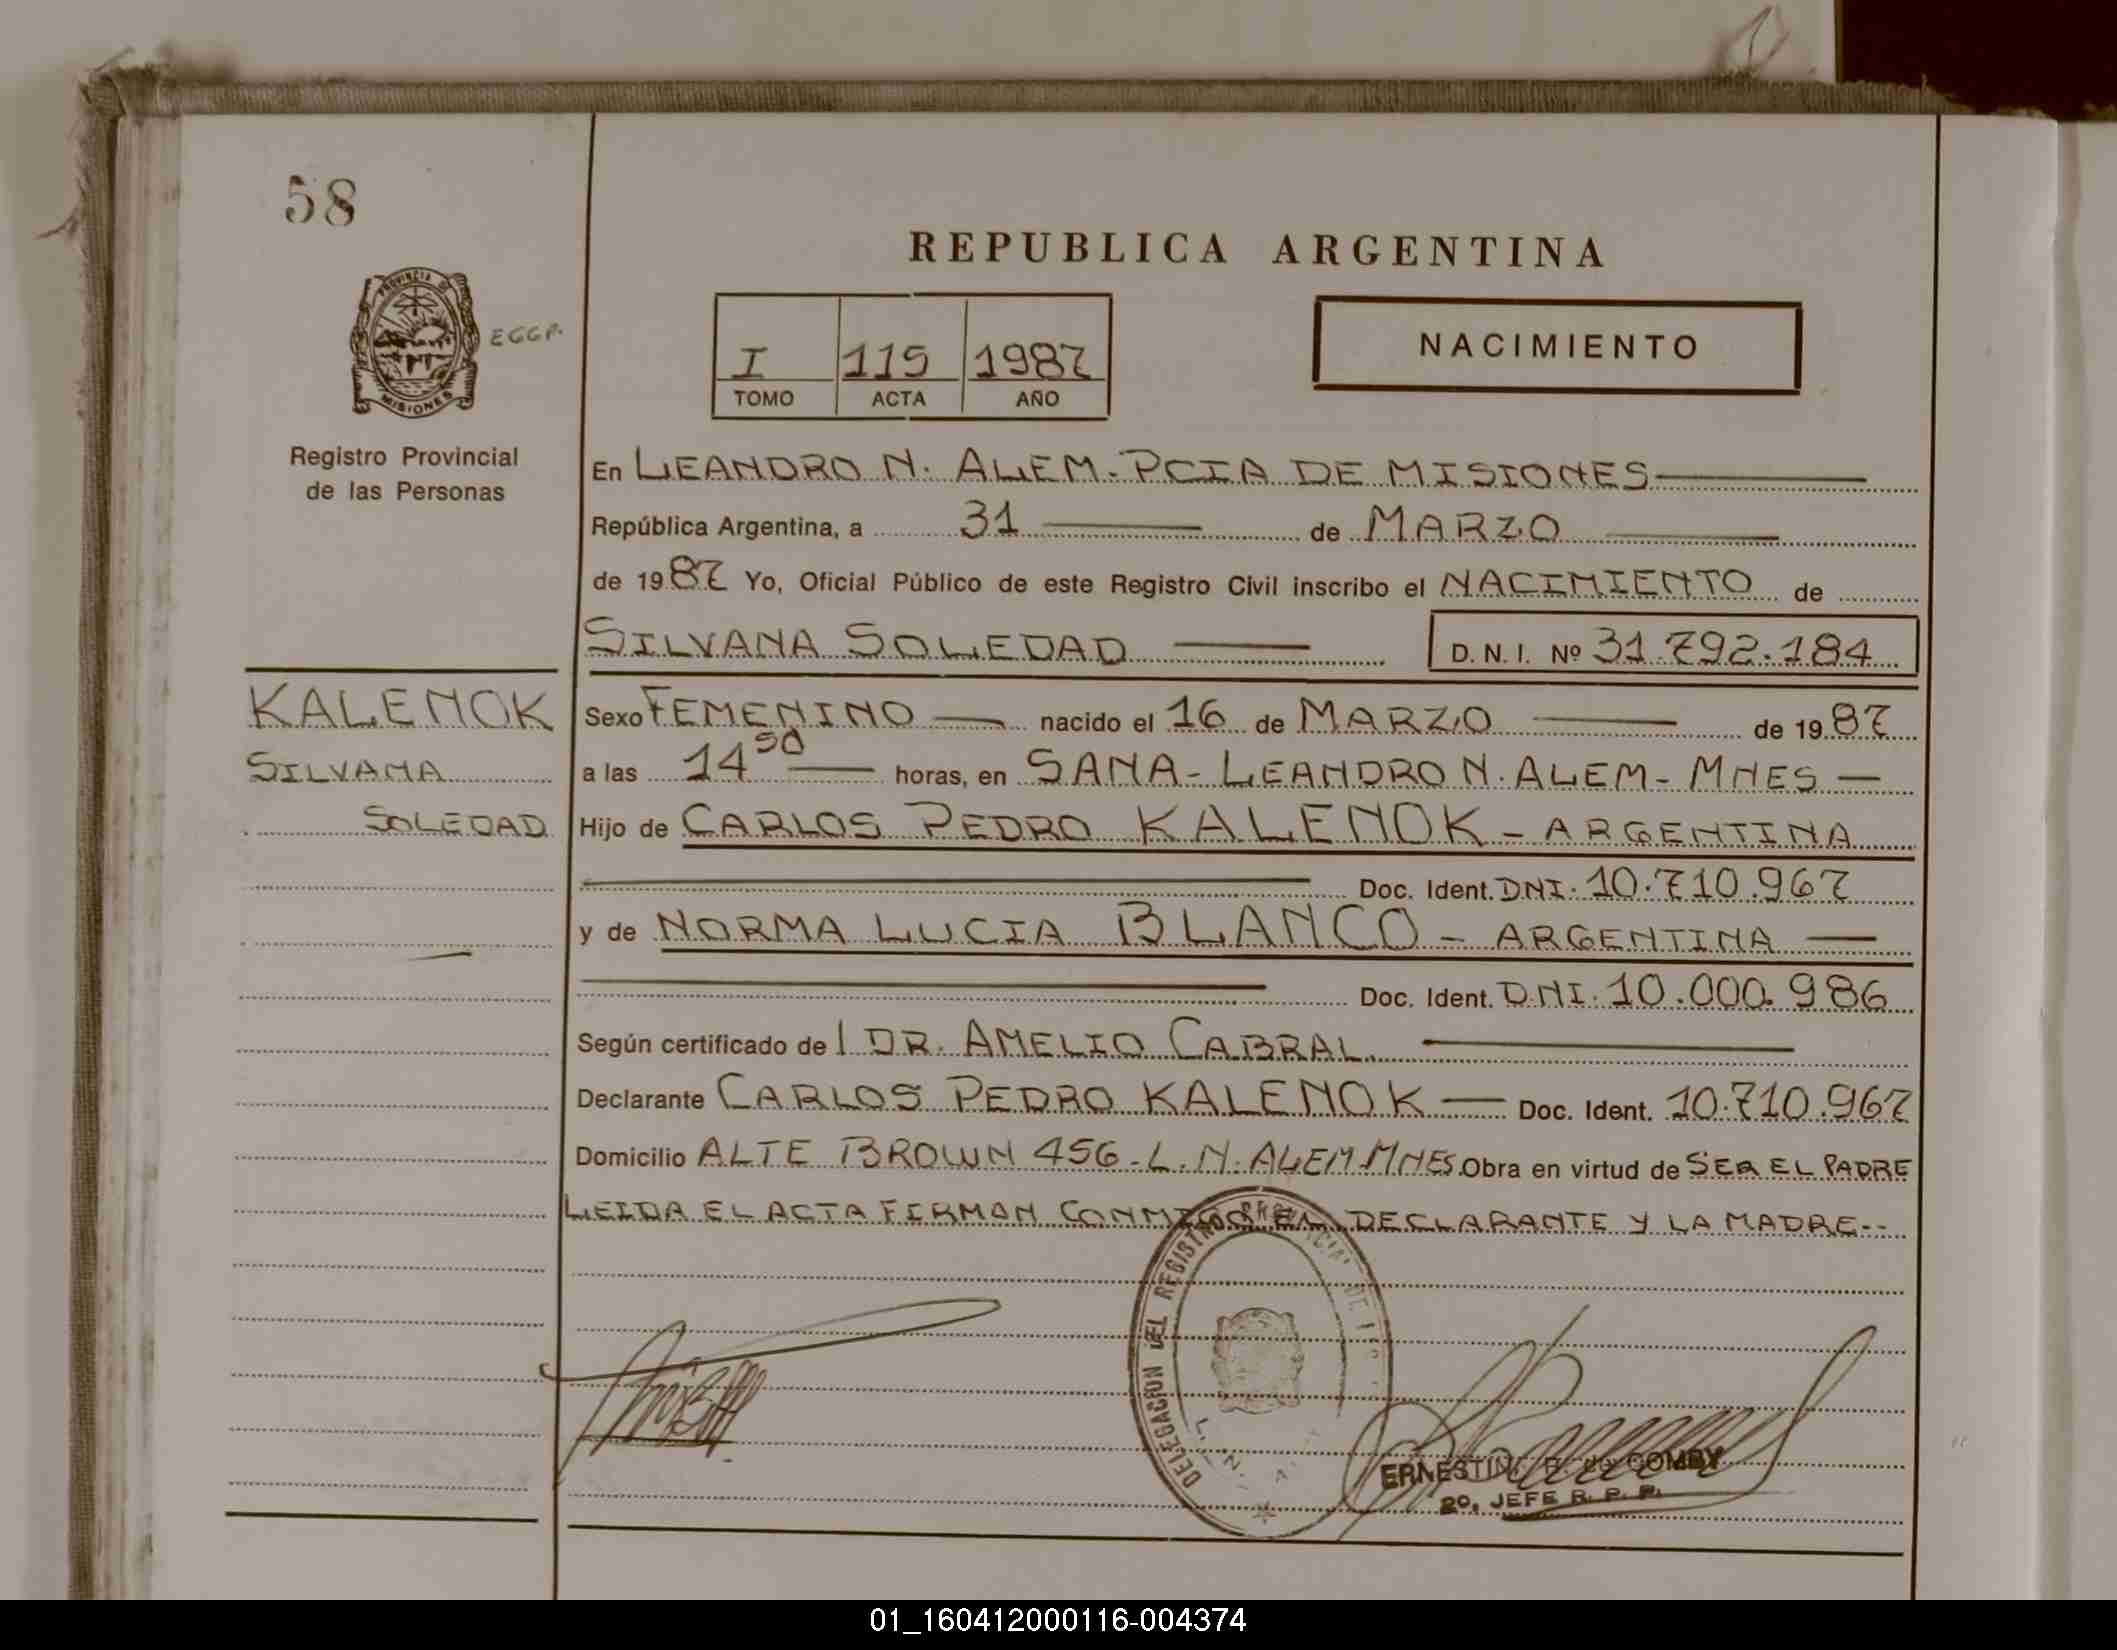 58
REPUBLICA ARGENTINA
PROVINCIA DE
MISIONES
EGGP.
I 115 1987
TOMO ACTA AÑO
NACIMIENTO
Registro Provincial
de las Personas
En LEANDRO N. ALEM-PCIA DE MISIONES
República Argentina, a 31 de MARZO
de 1987 Yo, Oficial Público de este Registro Civil inscribo el NACIMIENTO de
SILVANA SOLEDAD D.N.I. Nº 31.792.184
KALENOK
SILVANA
SOLEDAD
Sexo FEMENINO nacido el 16 de MARZO de 1987
a las 14 50 horas, en SANA-LEANDRO N. ALEM-MNES
Hijo de CARLOS PEDRO KALENOK - ARGENTINA
Doc. Ident. DNI. 10.710.967
y de NORMA LUCIA BLANCO - ARGENTINA
Doc. Ident. DNI. 10.000.986
Según certificado de l DR. AMELIO CABRAL
Declarante CARLOS PEDRO KALENOK Doc. Ident. 10.710.967
Domicilio ALTE BROWN 456-L.N.ALEM-MNES Obra en virtud de SER EL PADRE
LEIDA EL ACTA FIRMAN CONMIGO EL DECLARANTE Y LA MADRE--
DELEGACION DEL REGISTRO PROVINCIAL DE
L. N. A
ERNESTINA R. de COMBY
2º. JEFE R. P. P.
01_160412000116-004374